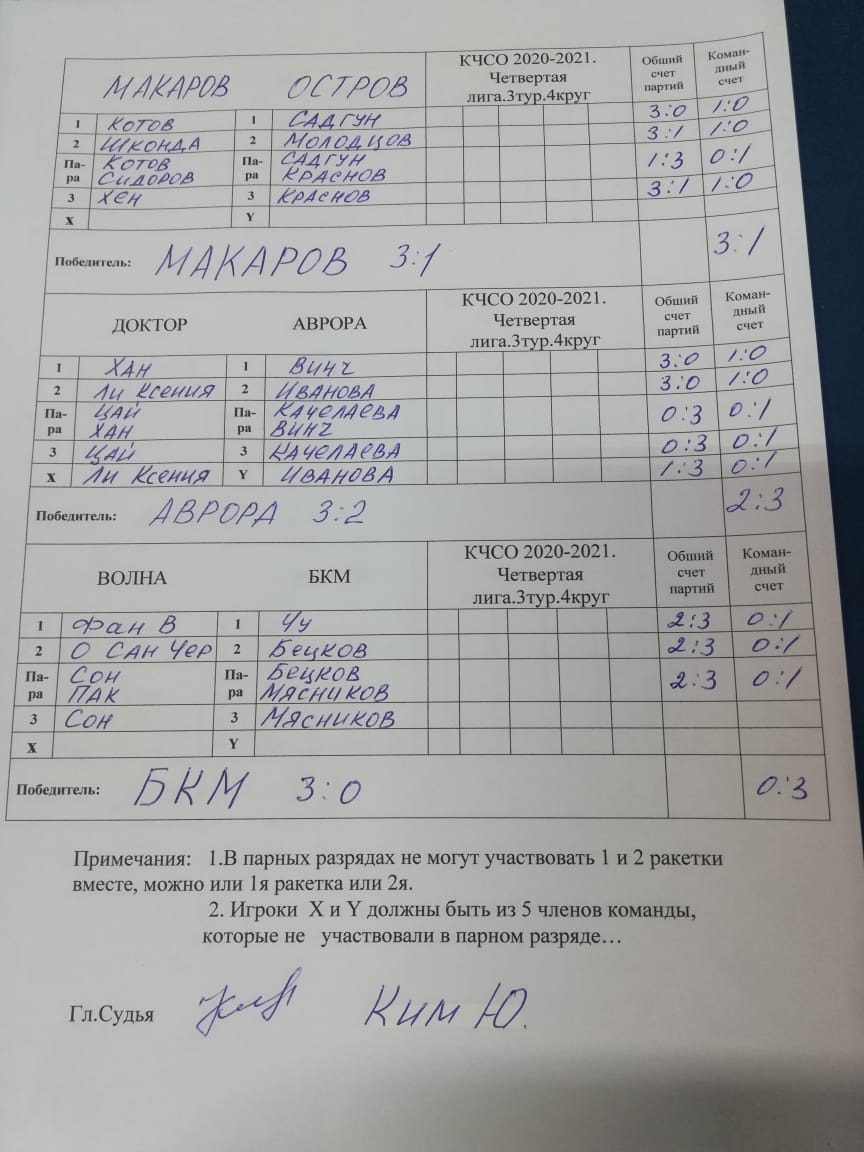 МАКАРОВ ОСТРОВ КЧСО 2020-2021. Четвертая лига.3тур.4круг Общий счет партий Коман-дный счет
1 КОТОВ 1 САДГУН 3:0 1:0
2 ШКОНДА 2 МОЛОДЦОВ 3:1 1:0
Па-ра КОТОВ СИДОРОВ Па-ра САДГУН КРАСНОВ 1:3 0:1
3 ХЕН 3 КРАСНОВ 3:1 1:0
X Y
Победитель: МАКАРОВ 3:1 3:1
ДОКТОР АВРОРА КЧСО 2020-2021. Четвертая лига.3тур.4круг Общий счет партий Коман-дный счет
1 ХАН 1 ВИНЧ 3:0 1:0
2 ЛИ КСЕНИЯ 2 ИВАНОВА 3:0 1:0
Па-ра ЦАЙ ХАН Па-ра КАЧЕЛАЕВА ВИНЧ 0:3 0:1
3 ЦАЙ 3 КАЧЕЛАЕВА 0:3 0:1
X ЛИ КСЕНИЯ Y ИВАНОВА 1:3 0:1
Победитель: АВРОРА 3:2 2:3
ВОЛНА БКМ КЧСО 2020-2021. Четвертая лига.3тур.4круг Общий счет партий Коман-дный счет
1 ФАН В 1 ЧУ 2:3 0:1
2 О САН ЧЕР 2 БЕЦКОВ 2:3 0:1
Па-ра СОН ПАК Па-ра БЕЦКОВ МЯСНИКОВ 2:3 0:1
3 СОН 3 МЯСНИКОВ
X Y
Победитель: БКМ 3:0 0:3
Примечания: 1.В парных разрядах не могут участвовать 1 и 2 ракетки
вместе, можно или 1я ракетка или 2я.
2. Игроки X и Y должны быть из 5 членов команды,
которые не участвовали в парном разряде…
Гл.Судья КИМ Ю.